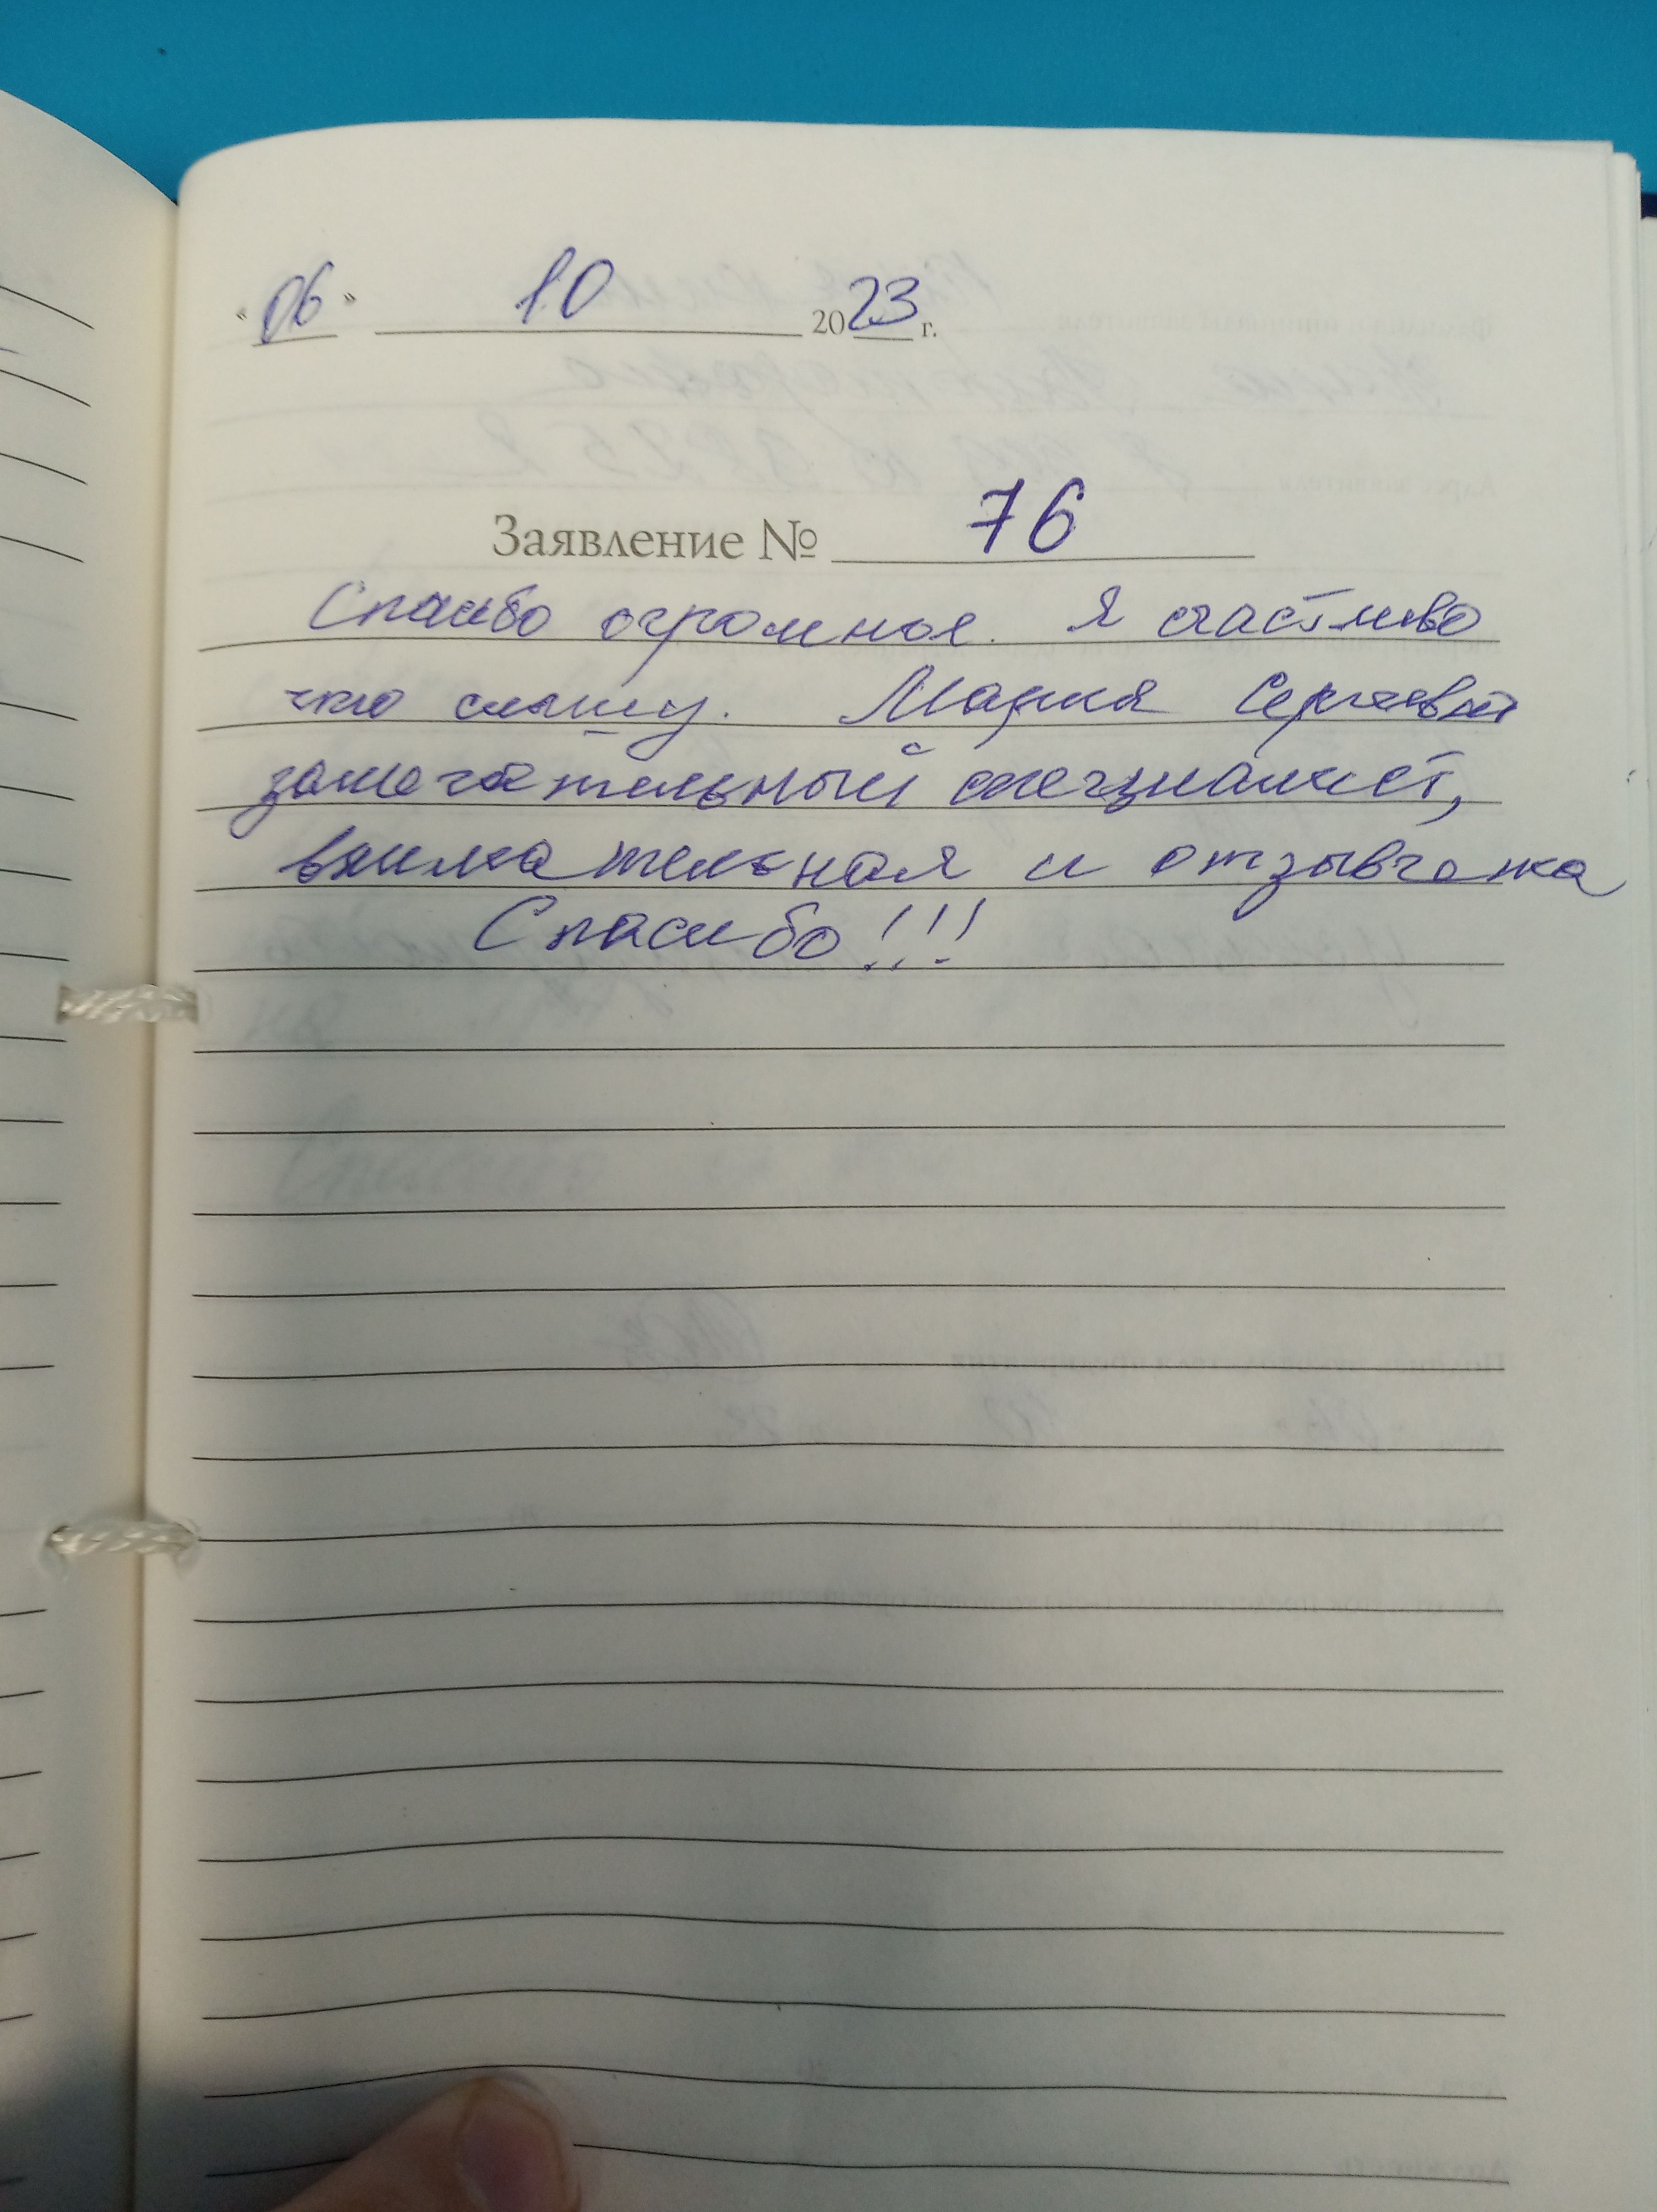 « 06 » 10 2023 г.
Заявление № 76
Спасибо огромное. Я счастливо
что слышу. Мария Сергеевна
замечательный специалист,
внимательная и отзывчева
Спасибо!!!